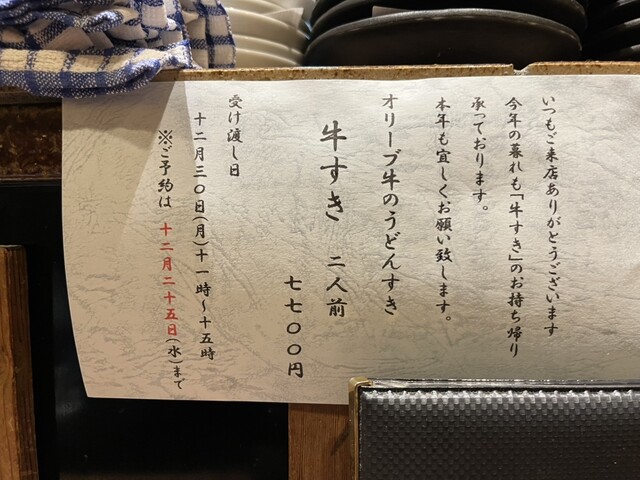 いつもご来店ありがとうございます
今年の暮れも「牛すき」のお持ち帰り
承っております。
本年も宜しくお願い致します。
オリーブ牛のうどんすき
牛すき 二人前
七七〇〇円
受け渡し日
十二月三〇日(月)十一時～十五時
※ご予約は 十二月二十五日(水)まで